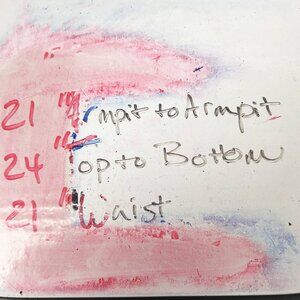 21" Armpit to Armpit
24" Top to Bottom
21" Waist